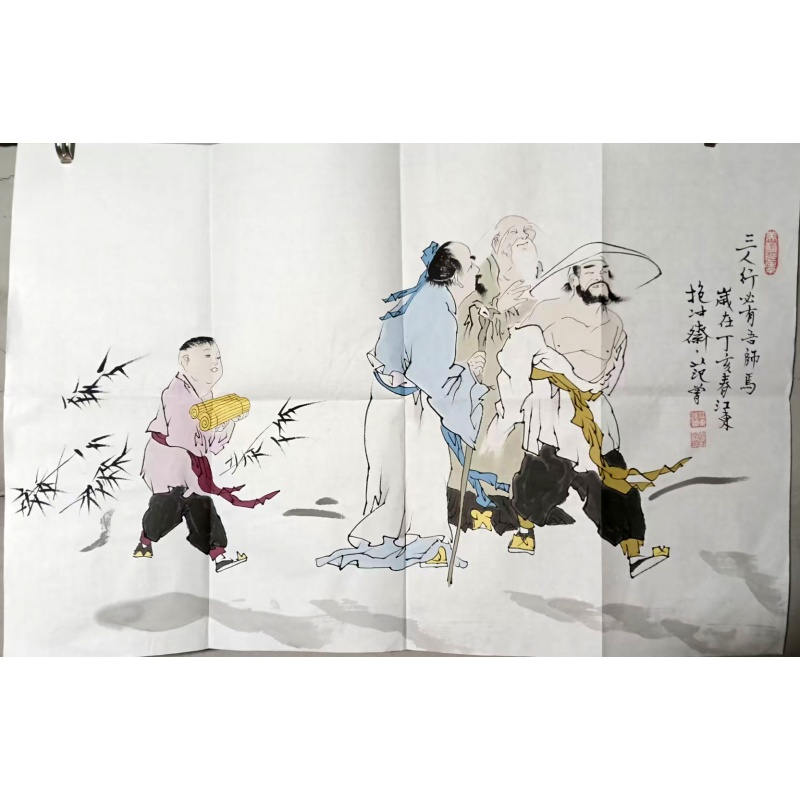 三人行必有吾師焉
歲在丁亥春江東
抱冲齋十翼范曾